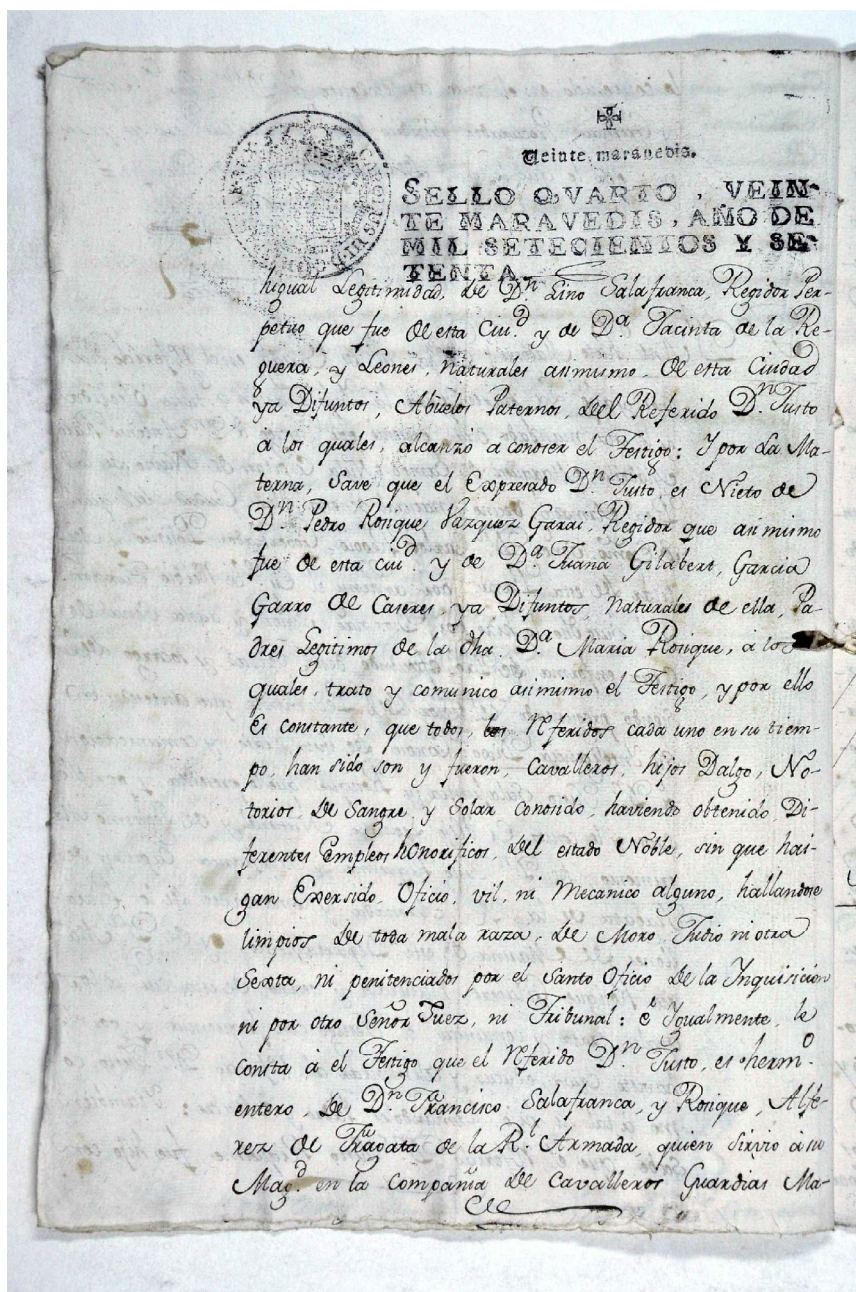 Veinte maravedis.
SELLO QVARTO, VEIN-
TE MARAVEDIS, AÑO DE
MIL SETECIENTOS Y SE-
TENTA
CAROLUS III D G
higual Legitimidad, de Dn. Lino Salafranca, Regidor Per-
petuo que fue de esta Ciud. y de Da. Jacinta de la Re-
guera, y Leones, naturales asimismo, de esta Ciudad
ya Difuntos, Abuelos Paternos, del Referido Dn. Justo
a los quales, alcanzó a conoser el Testigo: Y por La Ma-
terna, Save que el Expresado Dn. Justo, es Nieto de
Dn. Pedro Rosique Vazquez Garai, Regidor que asimismo
fue de esta ciud. y de Da. Juana Gilabert, Garcia
Garro de Caseres, ya Difuntos, naturales de ella, Pa-
dres Legitimos de la dha. Da. Maria Rosique, á los
quales, trato y comunico asimismo el Testigo, y por ello
Es constante, que todos, los Referidos cada uno en su tiem-
po, han sido son y fueron, Cavalleros, hijos Dalgo, No-
torios, de Sangre, y Solar conosido, haviendo obtenido, Di-
ferentes Empleos honorificos, del estado Noble, sin que hai-
gan Exersido, Oficio, vil, ni Mecanico alguno, hallandose
limpios de toda mala raza, de Moro Judio ni otra
Sexta, ni penitenciados por el Santo Oficio de la Inquisicion
ni por otro Señor Juez, ni Tribunal: é Ygualmente, le
Consta á el Testigo que el Referido Dn. Justo, es hermo.
entero, de Dn. Francisco Salafranca, y Rosique, Alfe-
rez de Fragata de la Rl. Armada, quien sirvio á su
Magd. en la Compañia de Cavalleros Guardias Ma-